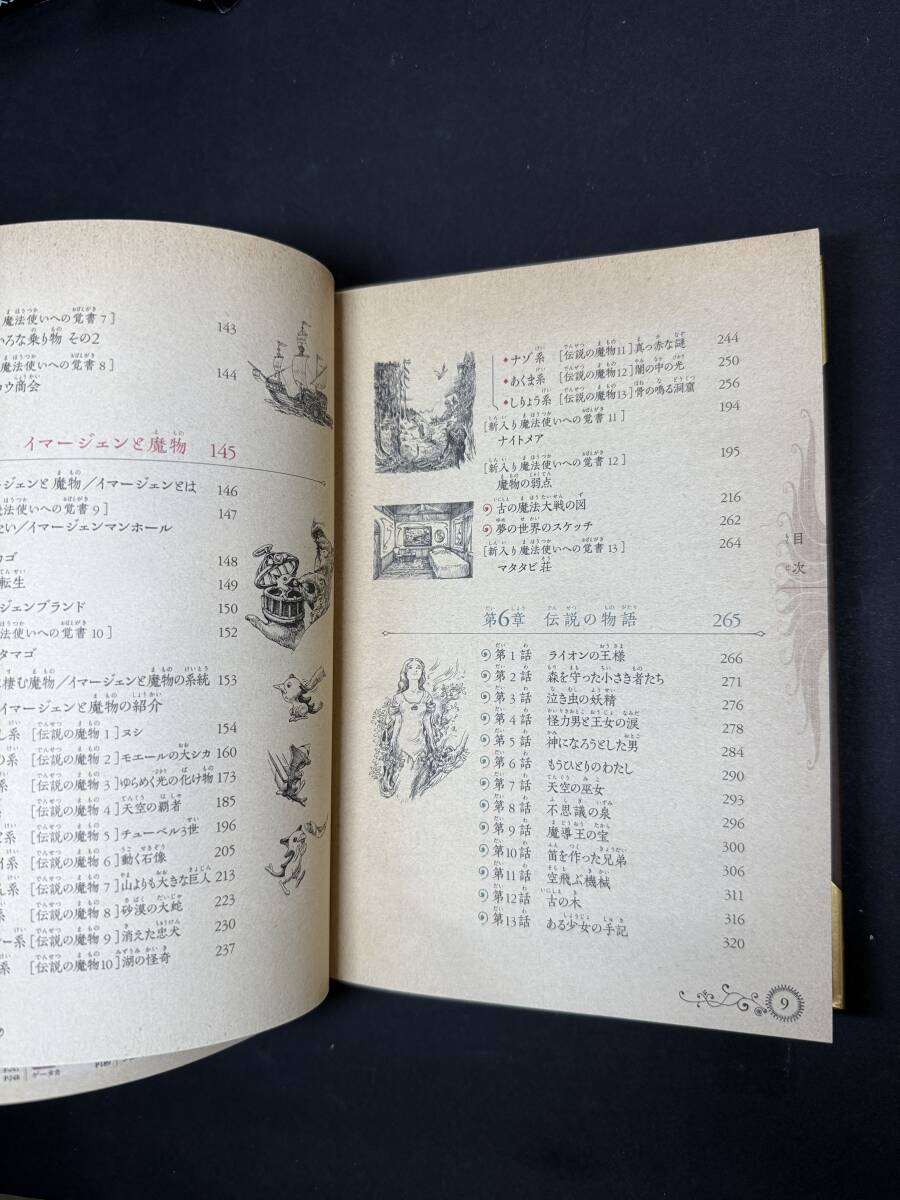 魔法使いへの覚書 7] 143
いろな乗り物 その2
魔法使いへの覚書 8] 144
コウ商会
イマージェンと魔物 145
ージェンと魔物／イマージェンとは 146
魔法使いへの覚書 9] 147
い／イマージェンマンホール
カゴ 148
転生 149
ージェンブランド 150
魔法使いへの覚書 10] 152
タマゴ
に棲む魔物／イマージェンと魔物の系統 153
イマージェンと魔物の紹介
し系 [伝説の魔物 1]ヌシ 154
の系 [伝説の魔物 2]モエールの大シカ 160
系 [伝説の魔物 3]ゆらめく光の化け物 173
[伝説の魔物 4]天空の覇者 185
系 [伝説の魔物 5]チューベル3世 196
イ系 [伝説の魔物 6]動く石像 205
系 [伝説の魔物 7]山よりも大きな巨人 213
系 [伝説の魔物 8]砂漠の大蛇 223
ー系 [伝説の魔物 9]消えた忠犬 230
系 [伝説の魔物10]湖の怪奇 237
ナゾ系 [伝説の魔物11]真っ赤な謎 244
あくま系 [伝説の魔物12]闇の中の光 250
しりょう系 [伝説の魔物13]骨の鳴る洞窟 256
[新入り魔法使いへの覚書 11] 194
ナイトメア
[新入り魔法使いへの覚書 12] 195
魔物の弱点
古の魔法大戦の図 216
夢の世界のスケッチ 262
[新入り魔法使いへの覚書 13] 264
マタタビ荘
第6章 伝説の物語 265
第1話 ライオンの王様 266
第2話 森を守った小さき者たち 271
第3話 泣き虫の妖精 276
第4話 怪力男と王女の涙 278
第5話 神になろうとした男 284
第6話 もうひとりのわたし 290
第7話 天空の巫女 293
第8話 不思議の泉 296
第9話 魔導王の宝 300
第10話 笛を作った兄弟 306
第11話 空飛ぶ機械 311
第12話 古の木 316
第13話 ある少女の手記 320
目次
9
P248 ゲータカ